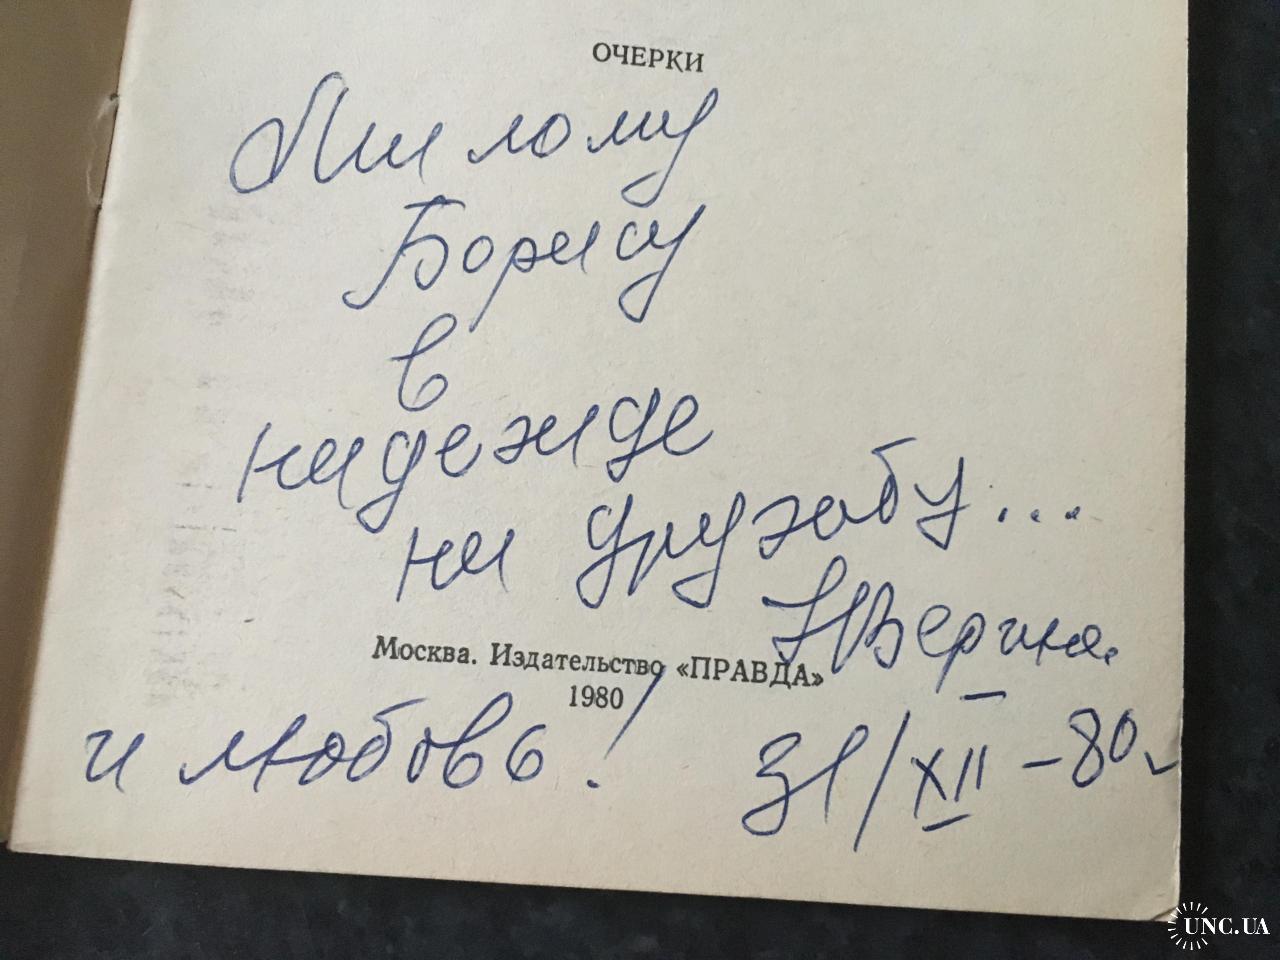 ОЧЕРКИ
Милому
Борису
в
надежде
на дружбу...
НВерина.
Москва. Издательство «ПРАВДА»
1980
и любовь!
31/XII-80г
UNC.UA